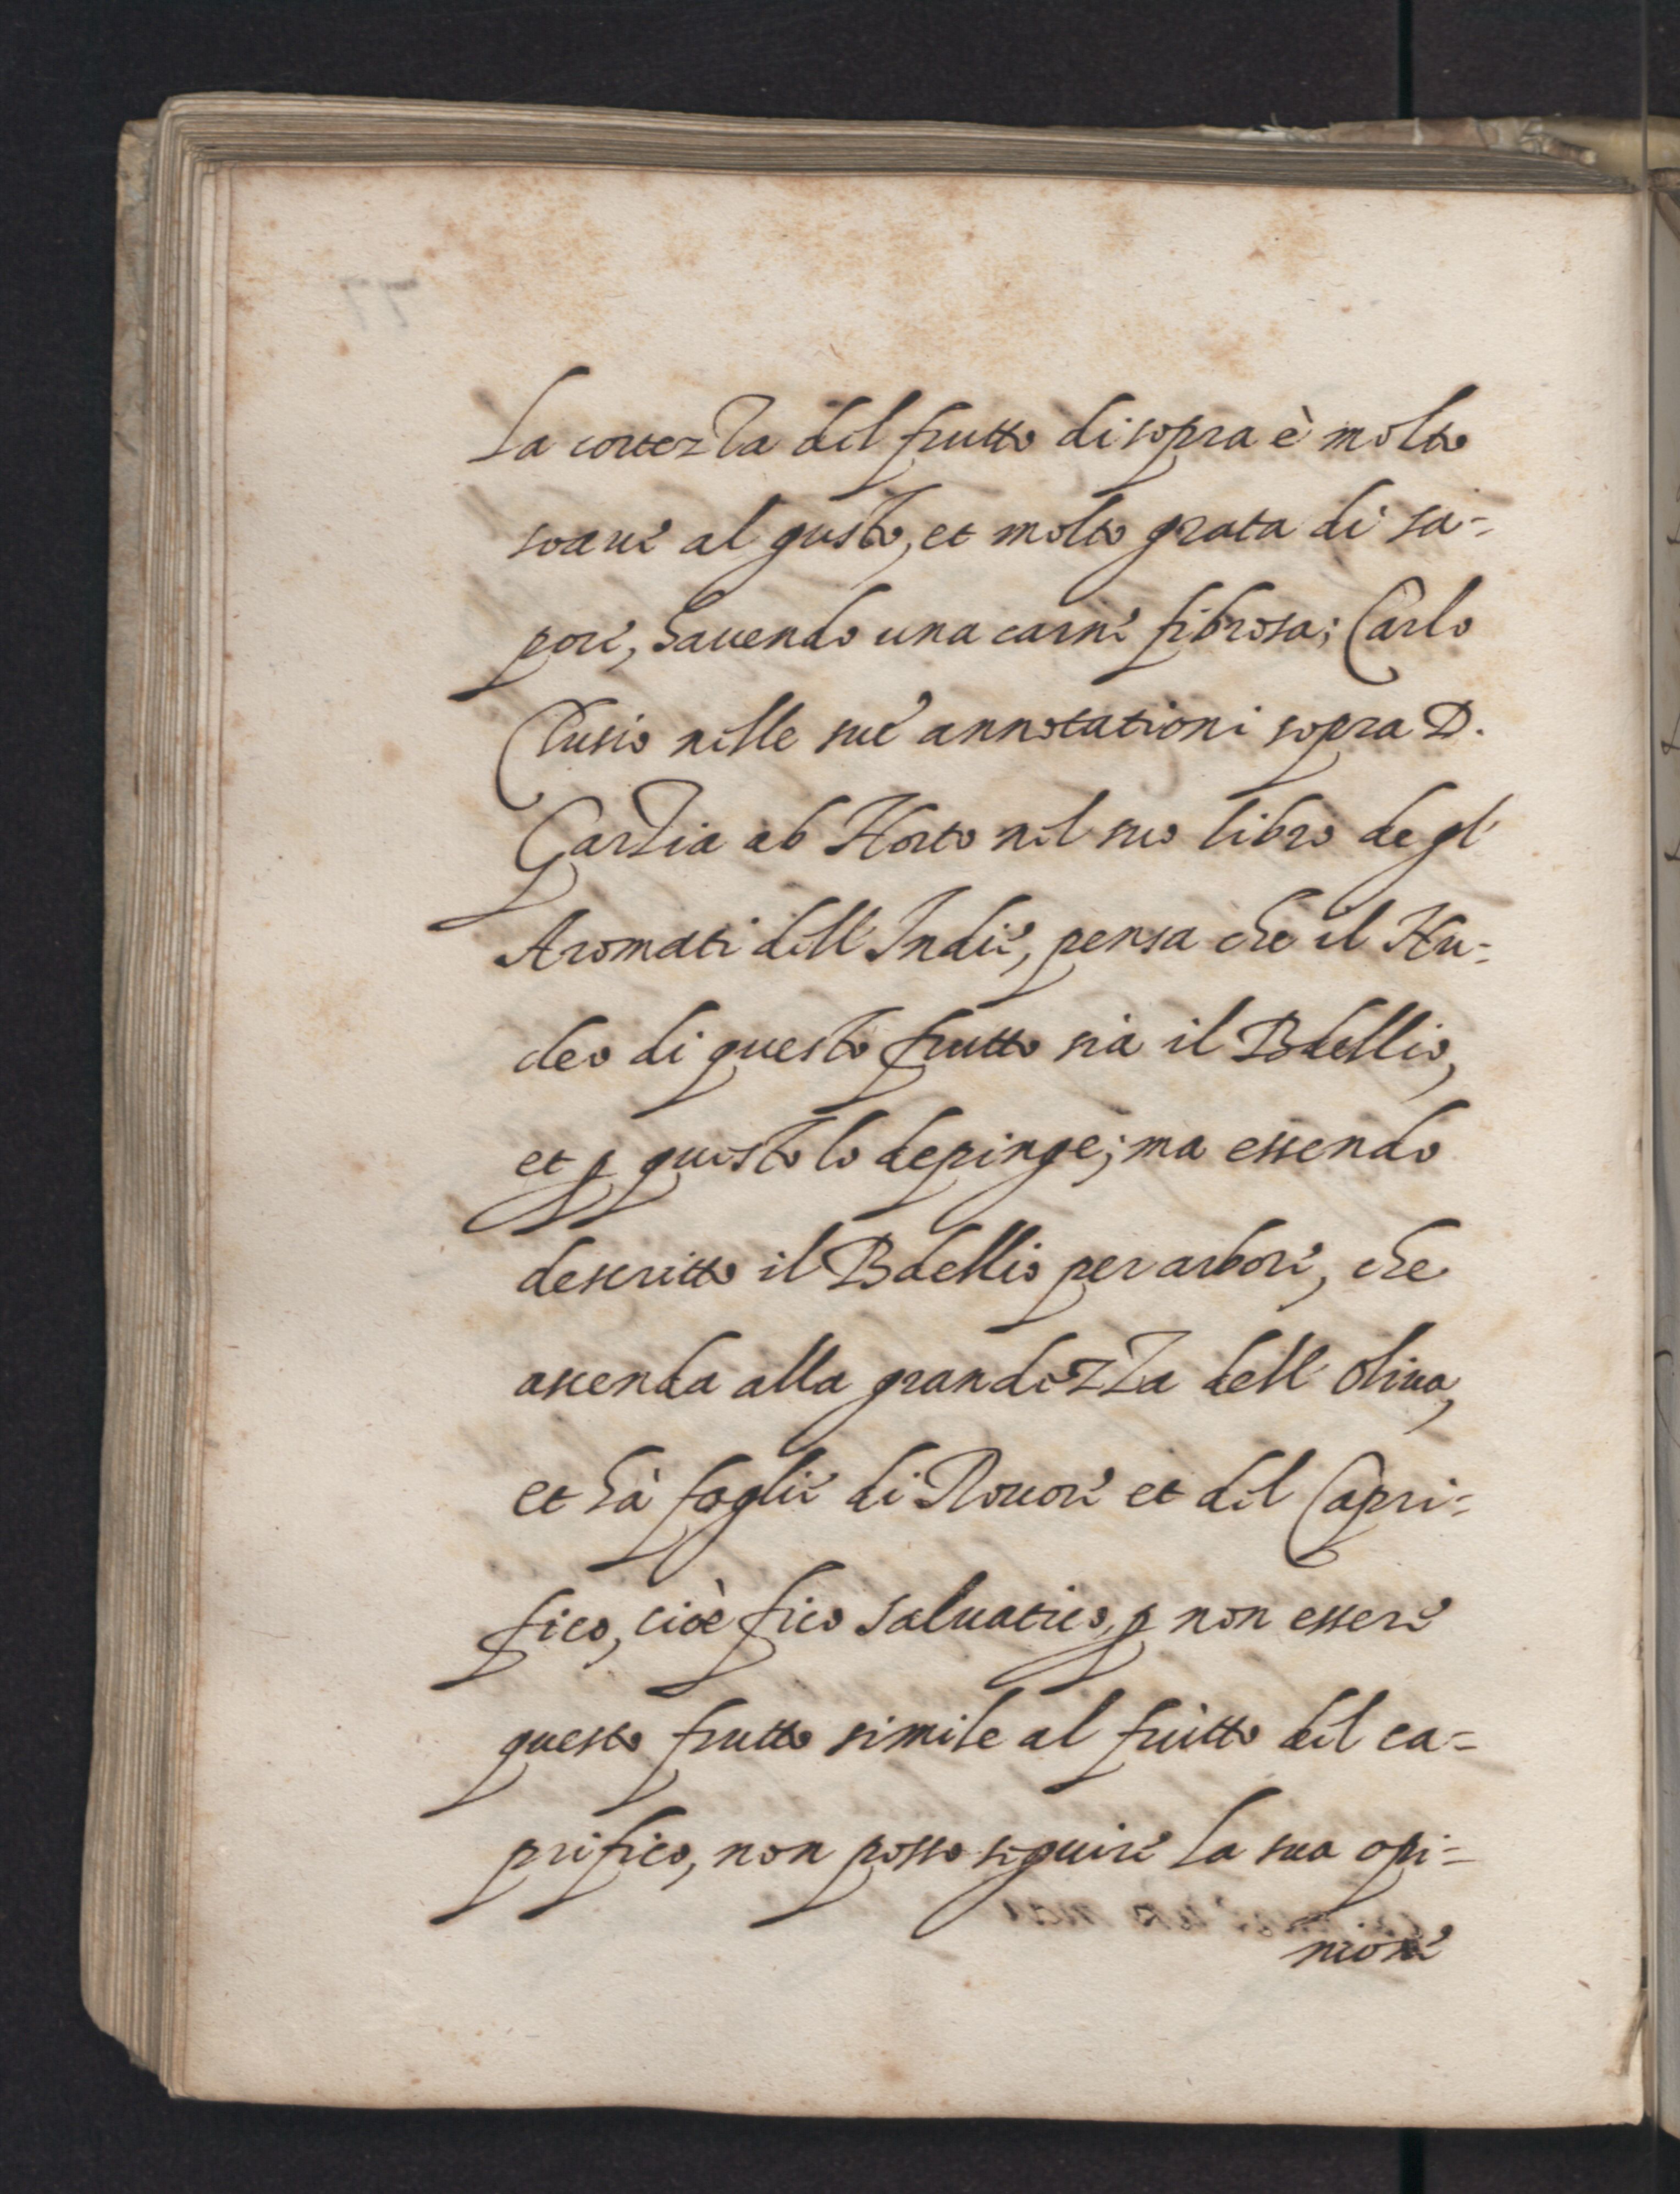 La cortezza del frutto di sopra è molto
soaue al gusto, et molto grata di sa=
pore, hauendo una carne fibrosa; Carlo
Clusio nelle sue annotationi sopra D.
Garzia ab Horto nel suo libro de gl'
Aromati dell' Indie, pensa che il Nu=
cleo di questo frutto sia il Bdellio,
et p questo lo depinge; ma essendo
descritto il Bdellio per arbore, che
ascenda alla grandezza dell' oliua,
et hà foglie di Rouore et del Capri=
fico, cioè fico saluatico, p non essere
questo frutto simile al frutto del ca=
prifico, non posso seguire la sua opi=
nione